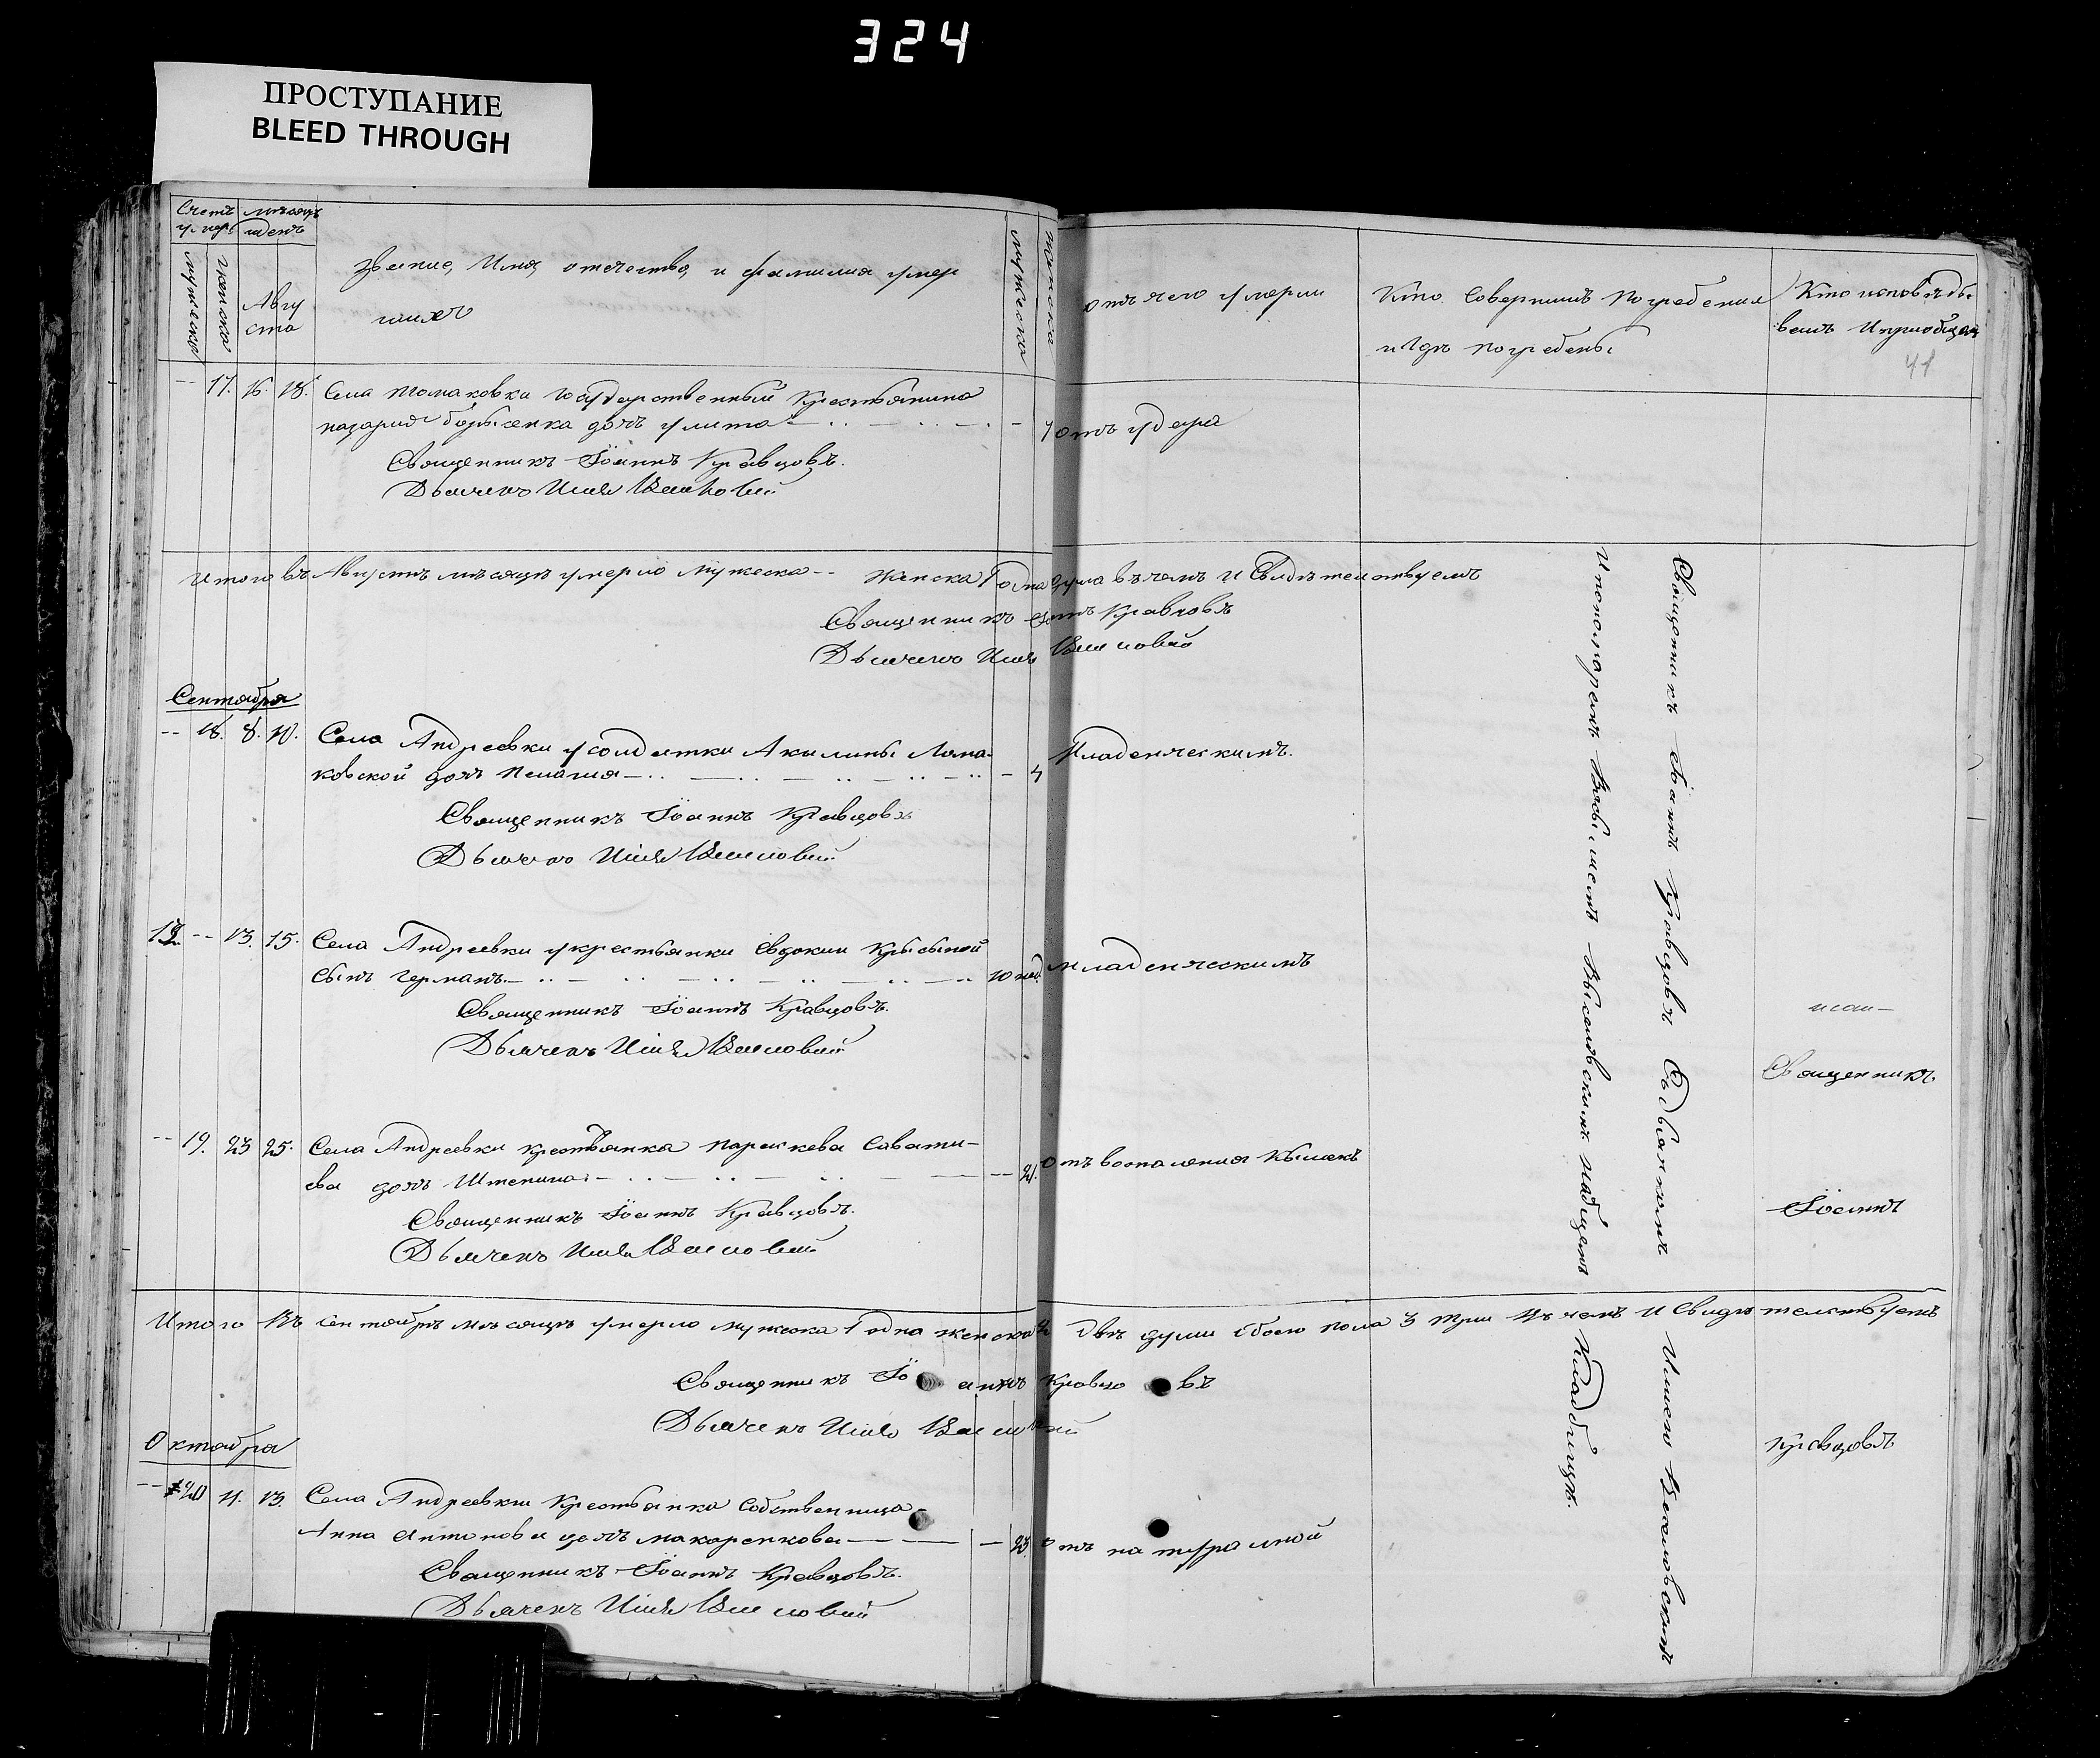 324
ПРОСТУПАНИЕ
BLEED THROUGH
Счетъ умерш
мѣсяцъ и день
мужеска
женска
Августа
Званіе, Имя, отечество, и фамилия умер
шихъ
мужеска
женска
отъ чего умерли
Кто совершилъ погребение
и гдѣ погребены
Кто исповѣды
валъ и приобщалъ
41
-- 17. 16. 18. Села Томаковки государственный Крестьянина
назария борисенка дочь улита - 7 отъ удара
Священникъ Іоаннъ Кравцовъ.
Дьячекъ Илия
Итого въ Августѣ мѣсяцѣ умерло мужеска -- женска 1 одна душа въ чемъ и свидѣтелствуемъ
Священникъ Іоаннъ Кравцовъ
Дьячекъ Илия
Сентября
-- 18. 8. 10. Села Андреевки у солдатки Акилины
ковской дочь пелагия - 4 Младенческимъ.
Священникъ Іоаннъ Кравцовъ
Дьячекъ Илия
13. 15. Села Андреевки у крестьянки Евдокии Крысыной
сынъ германъ. 10 нед. младенческимъ
Священникъ Іоаннъ Кравцовъ.
Дьячекъ Илия
-- 19. 23 25. Села Андреевки крестьянка параскева Савати-
ева дочь Штепина -- 21. отъ воспаления кышекъ
Священникъ Іоаннъ Кравцовъ.
Дьячекъ Илия
Итого въ сентябрѣ мѣсяцѣ умерло мужеска 1 одна женска 2 двѣ души обоего пола 3 три въ чемъ и свидѣтелствуемъ
Священникъ Іоаннъ Кравцовъ
Дьячекъ Илия
Октября
-- 20 11. 13. Села Андреевки Крестьянка собственница
Анна Антонова дочь макаренкова - 23. отъ натуралной
Священникъ Іоаннъ Кравцовъ.
Дьячекъ Илия
Священникъ Іоаннъ Кравцовъ Съ дьячкомъ Илиею
И пономаремъ на общемъ Кладбищѣ.
Священникъ
Іоаннъ
Кравцовъ